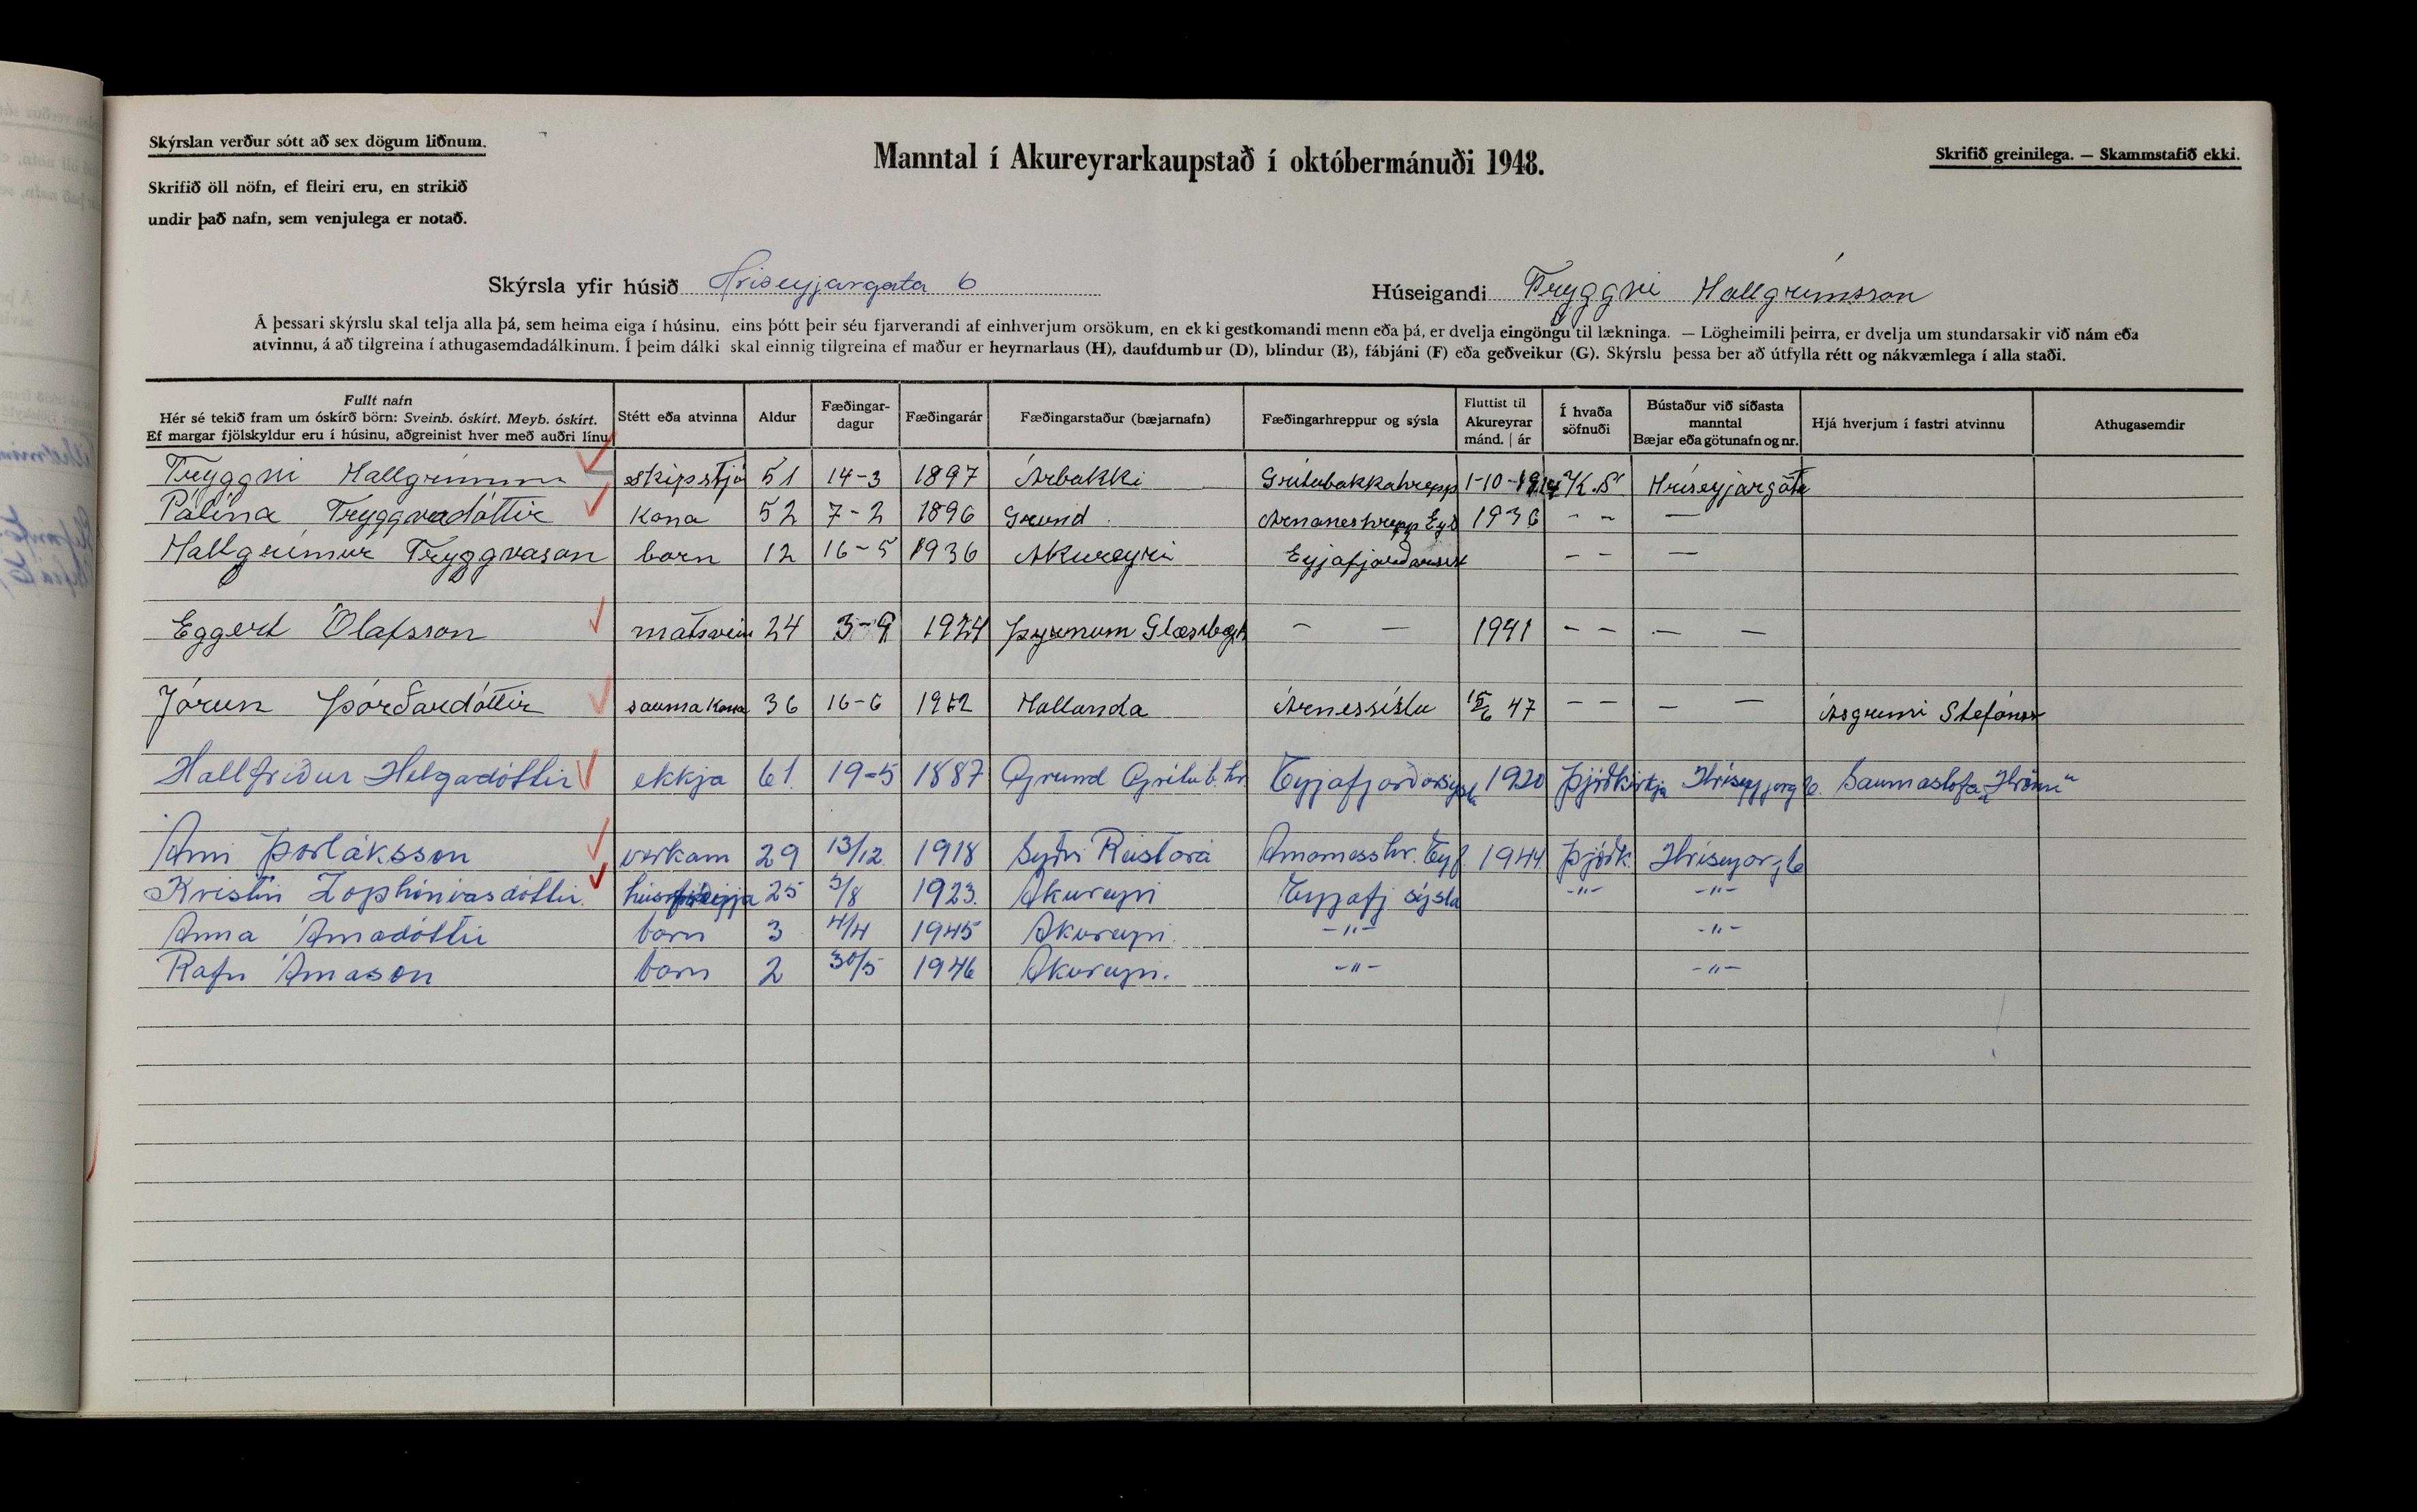 Skýrslan verður sótt að sex dögum liðnum.
Manntal í Akureyrarkaupstað í októbermánuði 1948.
Skrifið greinilega. — Skammstafið ekki.
Skrifið öll nöfn, ef fleiri eru, en strikið
undir það nafn, sem venjulega er notað.
Skýrsla yfir húsið Hríseyjargata 6
Húseigandi Tryggvi Hallgrímsson
Á þessari skýrslu skal telja alla þá, sem heima eiga í húsinu, eins þótt þeir séu fjarverandi af einhverjum orsökum, en ekki gestkomandi menn eða þá, er dvelja eingöngu til lækninga. — Lögheimili þeirra, er dvelja um stundarsakir við nám eða
atvinnu, á að tilgreina í athugasemdadálkinum. Í þeim dálki skal einnig tilgreina ef maður er heyrnarlaus (H), daufdumbur (D), blindur (B), fábjáni (F) eða geðveikur (G). Skýrslu þessa ber að útfylla rétt og nákvæmlega í alla staði.
Fullt nafn
Hér sé tekið fram um óskírð börn: Sveinb. óskírt. Meyb. óskírt.
Ef margar fjölskyldur eru í húsinu, aðgreinist hver með auðri línu.
Stétt eða atvinna
Aldur
Fæðingar-
dagur
Fæðingarár
Fæðingarstaður (bæjarnafn)
Fæðingarhreppur og sýsla
Fluttist til
Akureyrar
mánd. | ár
Í hvaða
söfnuði
Bústaður við síðasta
manntal
Bæjar eða götunafn og nr.
Hjá hverjum í fastri atvinnu
Athugasemdir
Tryggvi Hallgrímsson skipstjó 51 14-3 1897 Árbakki Grítubakkahrepp 1-10- Hríseyjargötu
Pálína Tryggvadóttir kona 52 7-2 1896 Grund Arnaneshrepp Eyð 1936 - - —
Hallgrímur Tryggvason barn 12 16-5 1936 Akureyri Eyjafjarðarsýsl - - —
Eggert Ólafsson matsvein 24 3-9 1924 Glæsibæ - - 1941 - - — —
Jórun Þórðardóttir saumakona 36 16-6 1912 Hallanda Árnessíslu 15/6 47 - - — — Ásgrímri Stefánss
Hallfríður Helgadóttir ekkja 61 19-5 1887 Grund Grítub.hr. Eyjafjarðarsýsla 1920 Þjóðkirkja Hríseyjarg 6. Saumastofa „Hrönn"
Árni Þorláksson verkam 29 13/12 1918 Syðri Reistará Arnarnesshr. Eyf 1944. Þjóðk. Hríseyjarg 6
Kristín Zophóníasdóttir 25 3/8 1923. Akureyri Eyjafj sýsla -"- -"-
Anna Árnadóttir barn 3 4/4 1945 Akureyri. -"- -"-
Rafn Árnason barn 2 30/5 1946 Akureyri. -"- -"-